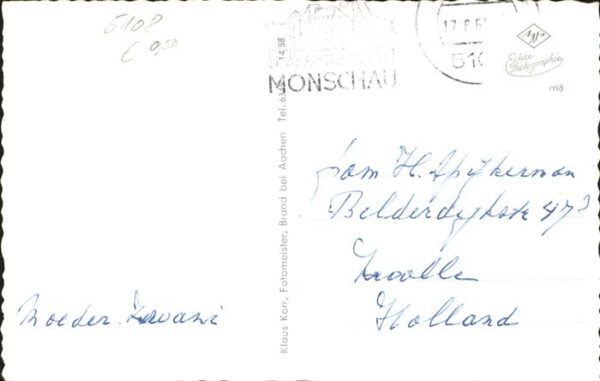 5108
€ 0,50
MONSCHAU
17.8.6
510
Agfa
Echte
Photographie
m8
Klaus Karr, Fotomeister, Brand bei Aachen Tel. 14/58
Fam H. Spijkerman
47
Zwolle
Holland
Moeder